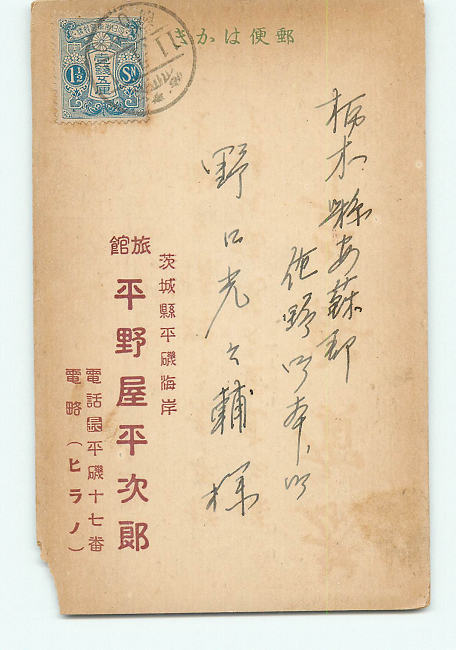 郵便はかき
栃木縣安蘇郡
佐野町本町
野口光之輔様
茨城縣平磯海岸
旅館
平野屋平次郎
電話平磯十七番
電略（ヒラノ）
1½ Sn
壹錢五厘